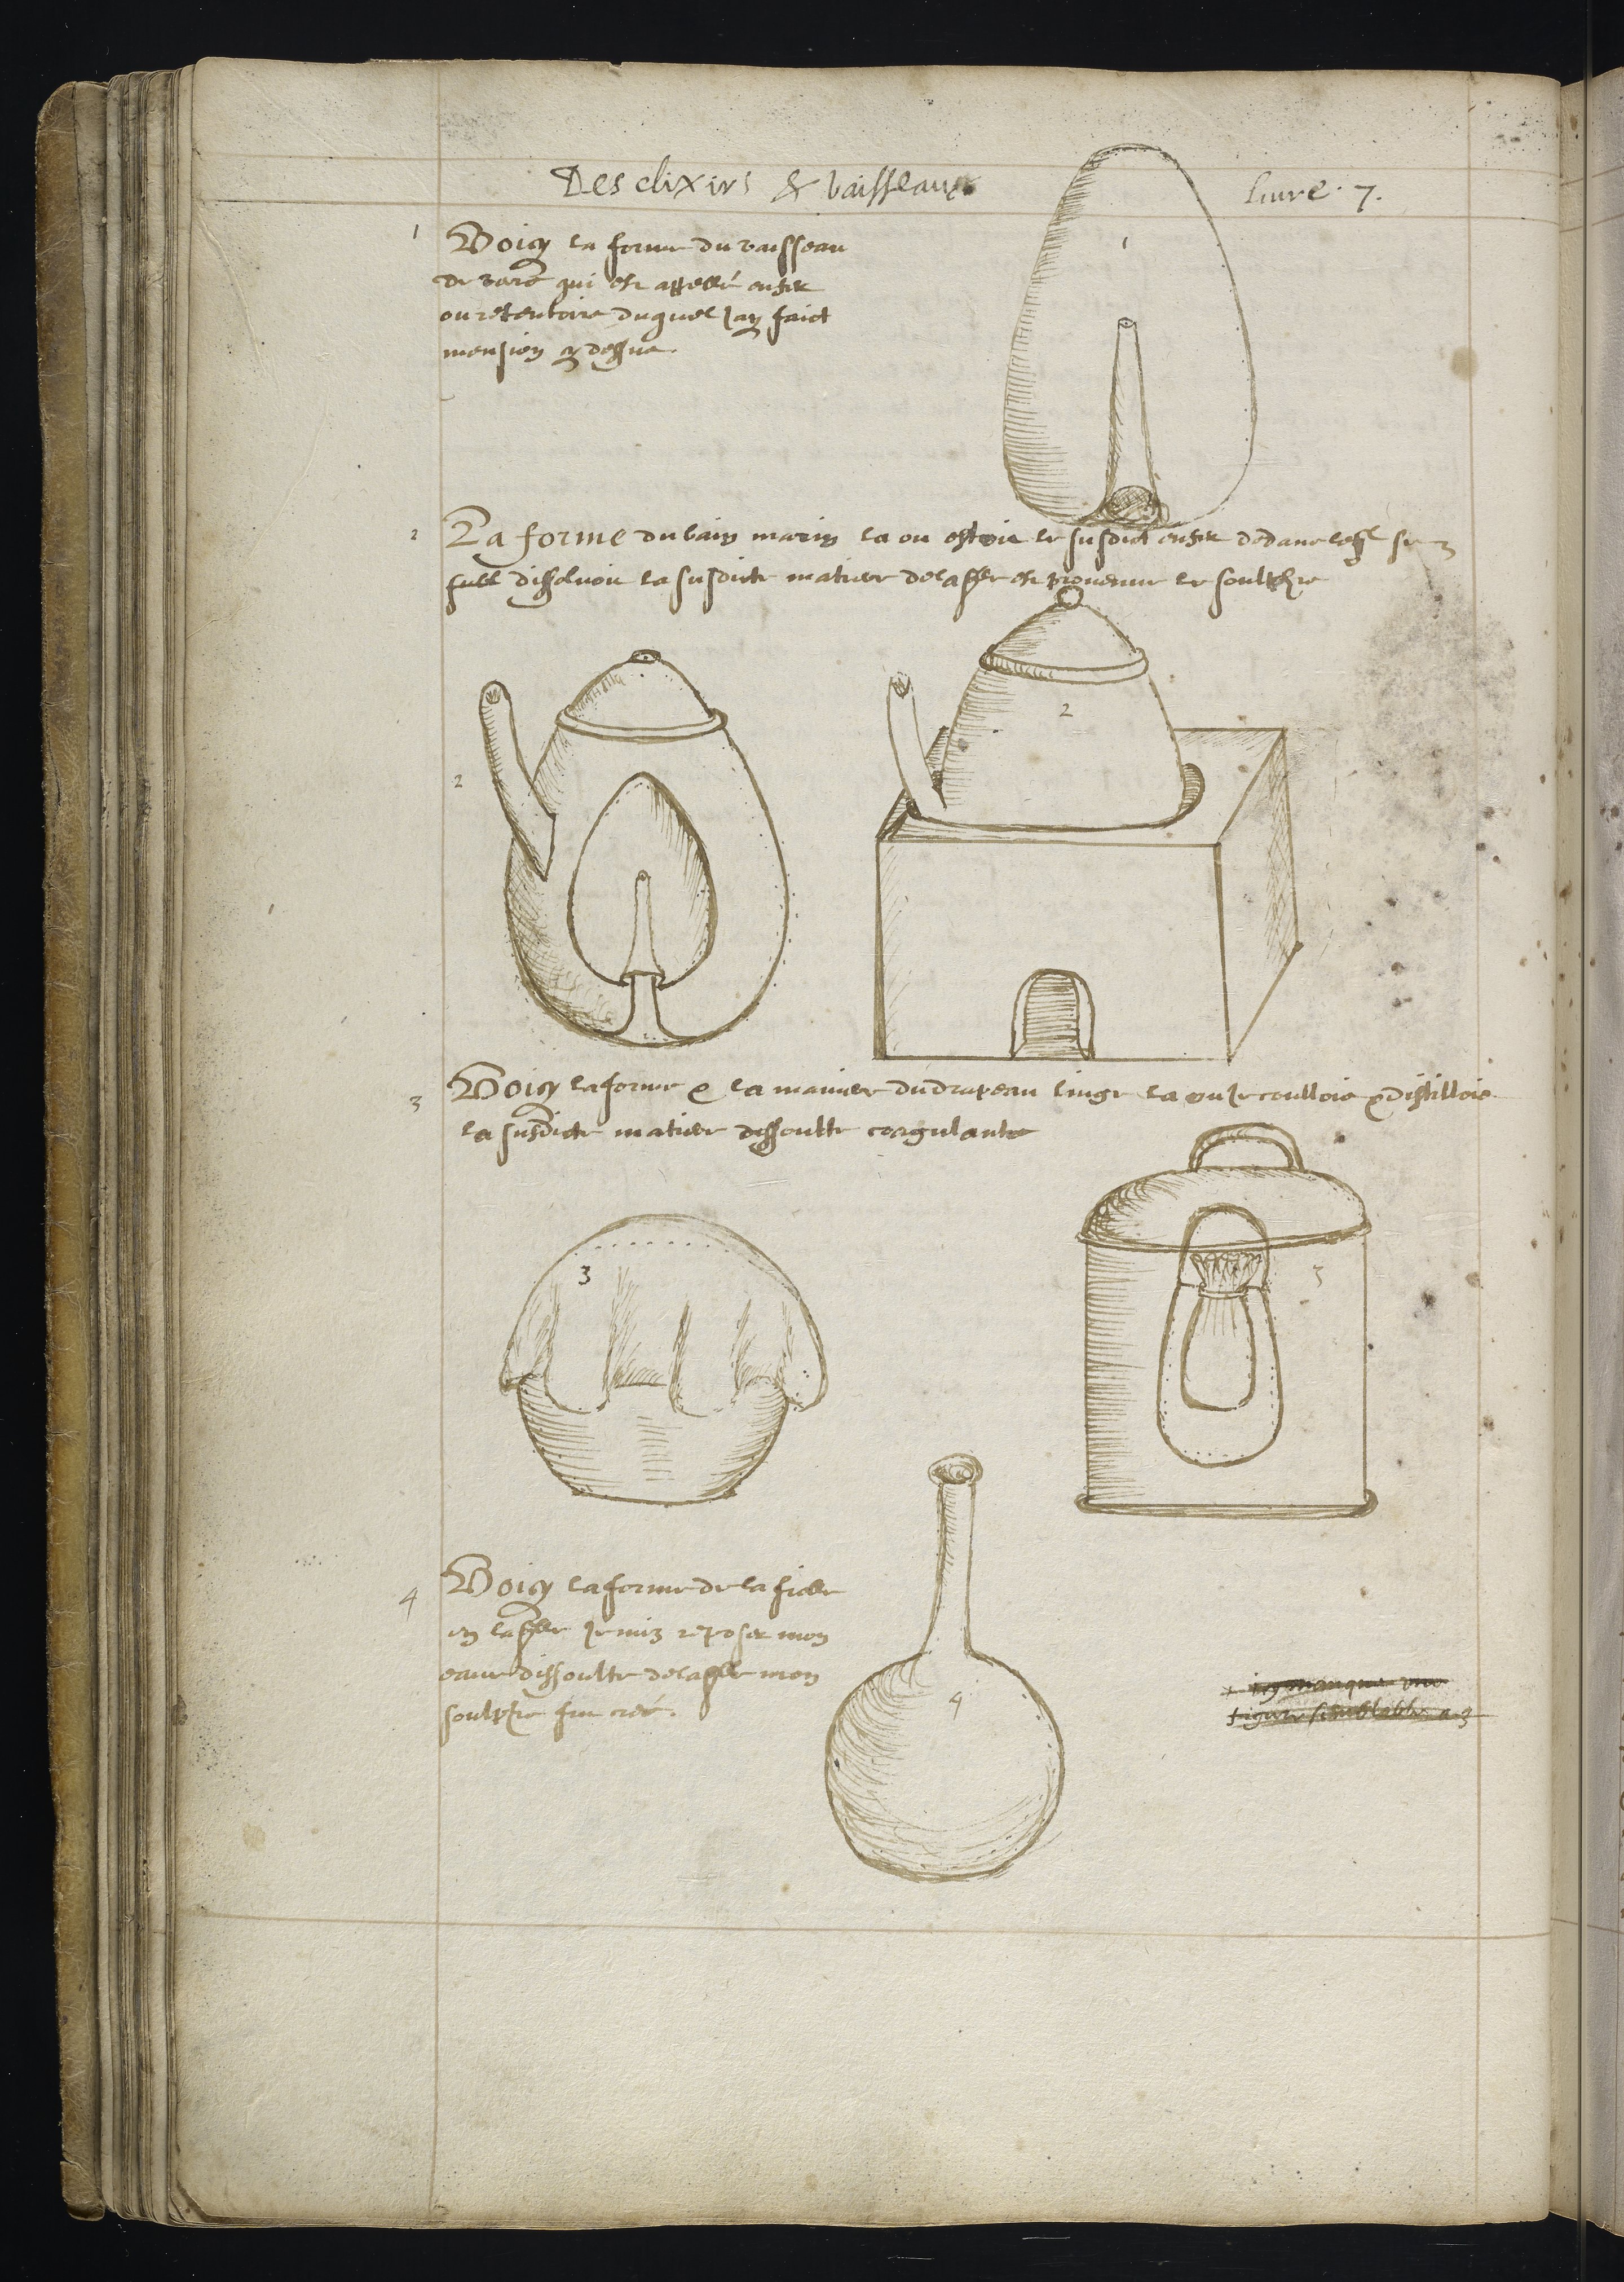 Des elixirs & vaisseaux
Livre. 7.
1
1 Voicy la forme du vaisseau
de verre qui est appellé enfer
ou retentoire duquel Jay faict
mension cy dessus.
2 La forme du bain marin la ou estoit le susdict enfer dedans leql se
dissoluoit la susdicte matiere de laqlle est prouenue le soulphre
2
2
3 Voicy la forme & la maniere du drapeau linge la ou Je coullois & distillois
la susdicte matiere dissoulte coagulante
3
3
4 Voicy la forme de la fiolle
en laqlle Je mis reposer mon
eaue dissoulte de laqlle mon
soulphre fut creé.
4
+ icy manque une
figure semblable a 3